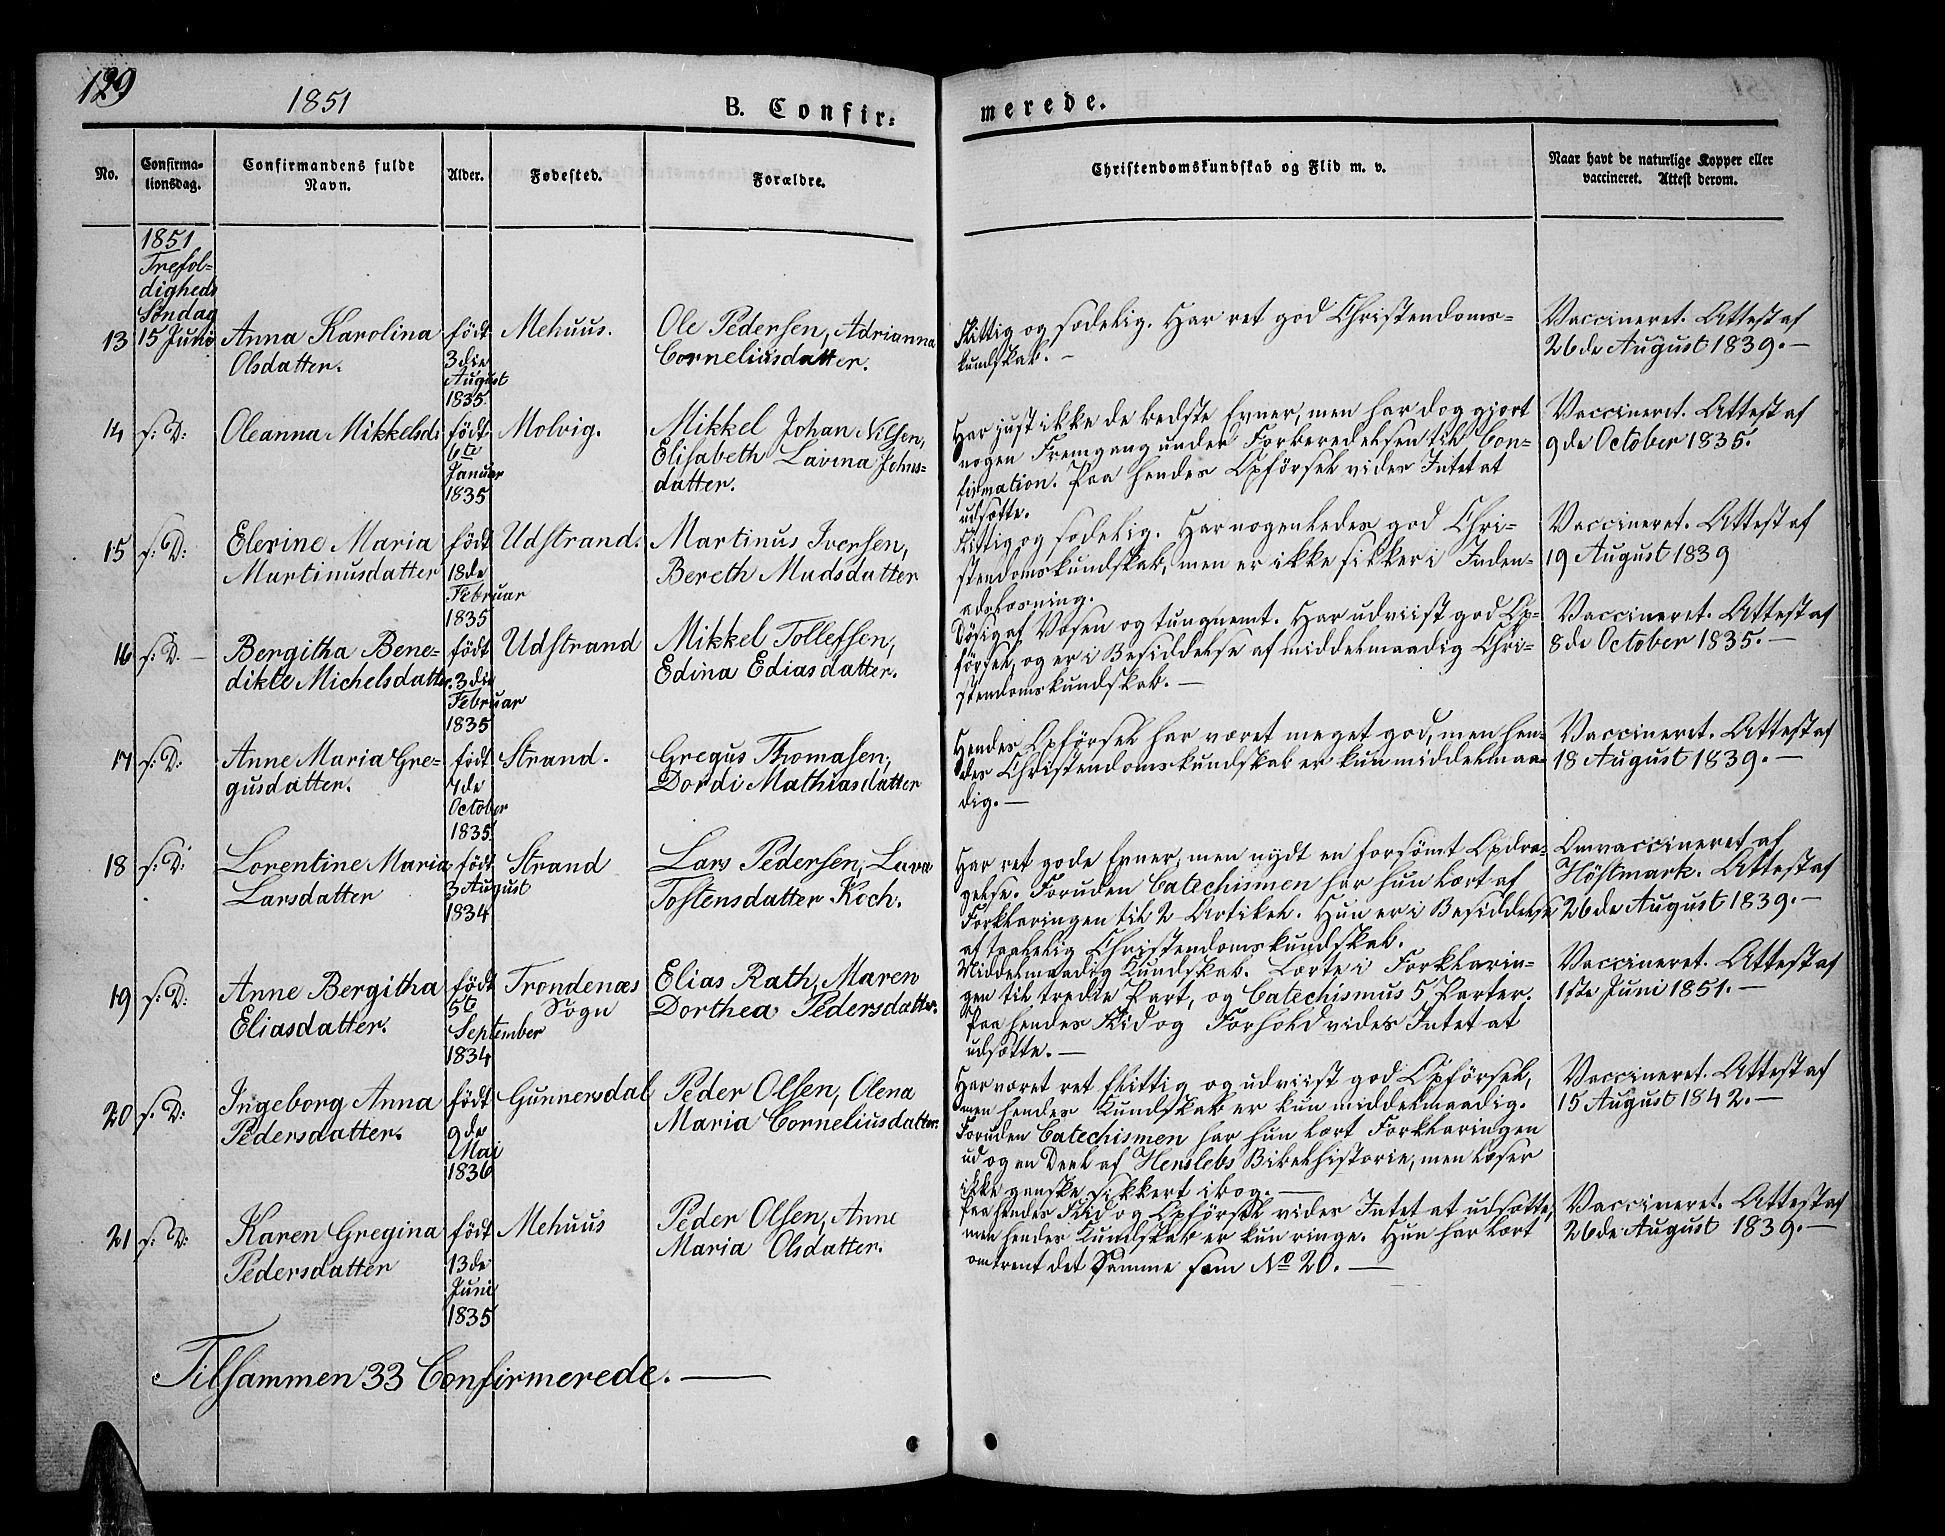 129
1851
B. Confir-
merede.
No.
Confirma-
tionsdag.
Confirmandens fulde
Navn.
Alder.
Fødested.
Forældre.
Christendomskundskab og Flid m. v.
Naar havt de naturlige Kopper eller
vaccineret. Attest derom.
1851
Trefol-
digheds
Søndag
13
15 Juni
Anna Karolina
Olsdatter.
födt
3die
August
1835.
Mehuus.
Ole Pedersen, Adrianna
Corneliusdatter.
Flittig og sædelig. Har ret god Christendoms-
kundskab. —
Vaccineret. Attest af
26de August 1839. —
14
s: D:
Oleanna Mikkelsd:
födt
6te
Januar
1835
Molvig.
Mikkel Johan Nilsen,
Elisabeth Lavina Johns-
datter.
Har just ikke de bedste Evner, men har dog gjort
nogen Fremgang under Forberedelsen til Con-
firmation. Paa hendes Opförsel vides Intet at
udsætte.
Vaccineret. Attest af
9de October 1835.
15
s: D:
Elerine Maria
Martinusdatter
födt
18de
Februar
1835
Udstrand.
Martinus Iversen,
Bereth Madsdatter
Flittig og sædelig. Har nogenledes god Chri-
stendomskundskab, men er ikke sikker i Inden-
adslæsning.
Vaccineret. Attest af
19 August 1839
16
s: D. —
Bergitha Bene-
dikte Michelsdatter.
födt
3die
Februar
1835
Udstrand
Mikkel Tollefsen,
Edina Ediasdatter.
Dösig af Væsen og tungnemt. Har udviist god Op-
försel, og er i Besiddelse af middelmaadig Chri-
stendomskundskab. —
Vaccineret. Attest af
8de October 1835. —
17
s: D:
Anne Maria Gre-
gusdatter.
födt
7de
October
1835.
Strand.
Gregus Thomasen,
Dordi Mathiasdatter
Hendes Opförsel har været meget god, men hen-
des Christendomskundskab er kun middelmaa-
dig. —
Vaccineret. Attest af
18 August 1839. —
18
s: D:
Lorentine Maria
Larsdatter
födt
3 August
1834
Strand
Lars Pedersen, Lava
Tostensdatter Koch.
Har ret gode Evner, men nydt en forsömt Opdra-
gelse. Foruden Catechismen har hun lært af
Forklaringen til 2 Artikel. Hun er i Besiddelse
af taalelig Christendomskundskab.
Omvaccineret af
Höstmark. Attest af
26de August 1839. —
19
s: D:
Anne Bergitha
Eliasdatter.
födt
5te
September
1834
Trondenæs
Sogn
Elias Rath, Maren
Dorthea Pedersdatter.
Middelmaadig Kundskab. Lærte i Forklarin-
gen til tredie Part, og Catechismus 5 Parter.
Paa hendes Flid og Forhold vides Intet at
udsætte. —
Vaccineret. Attest af
1ste Juni 1851. —
20
s: D:
Ingeborg Anna
Pedersdatter.
födt
9de
Mai
1836
Gunnersdal
Peder Olsen, Olena
Maria Corneliusdatter.
Har været ret flittig og udviist god Opförsel,
men hendes Kundskab er kun middelmaadig.
Foruden Catechismen har hun lært Forklaringen
ud og en Deel af Herslebs Bibelhistorie, men læser
ikke ganske sikkert i bog. —
Vaccineret. Attest af
15 August 1842. —
21
s: D:
Karen Gregina
Pedersdatter
födt
13de
Juni
1835
Mehuus
Peder Olsen, Anne
Maria Olsdatter.
Paa hendes Flid og Opförsel vides Intet at udsætte,
men hendes Kundskab er kun ringe. Hun har lært
omtrent det Samme som No 20. —
Vaccineret. Attest af
26de August 1839. —
Tilsammen 33 Confirmerede. —